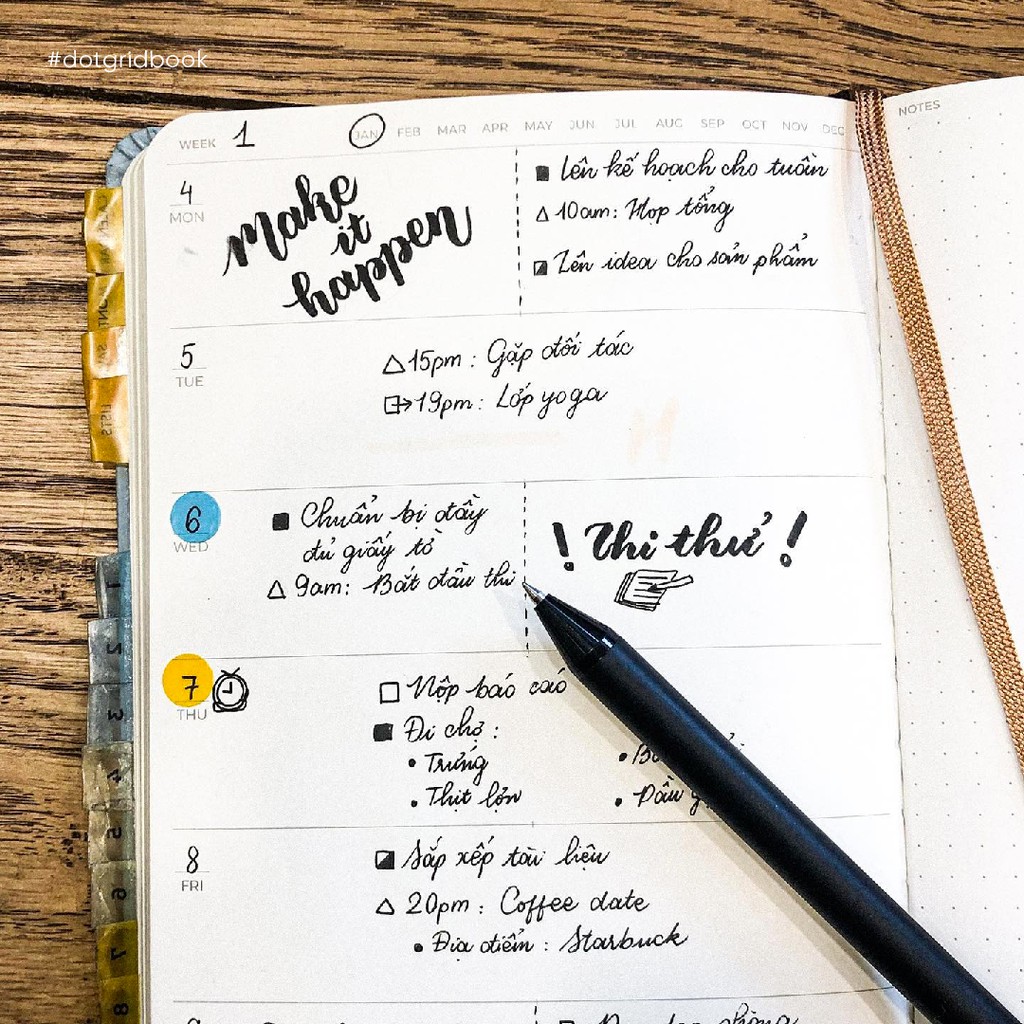 #dotgridbook
WEEK 1 JAN FEB MAR APR MAY JUN JUL AUG SEP OCT NOV DEC
NOTES
4
MON
Make
it
happen
Lên kế hoạch cho tuần
10am: Họp tổng
Lên idea cho sản phẩm
5
TUE
15pm: Gặp đối tác
19pm: Lớp yoga
6
WED
Chuẩn bị đầy
đủ giấy tờ
9am: Bắt đầu thi
! Thi thử !
7
THU
Nộp báo cáo
Đi chợ:
• Trứng
• Thịt lợn
• Dầu
8
FRI
Sắp xếp tài liệu
20pm: Coffee date
• Địa điểm: Starbuck
1
2
3
4
5
6
7
8